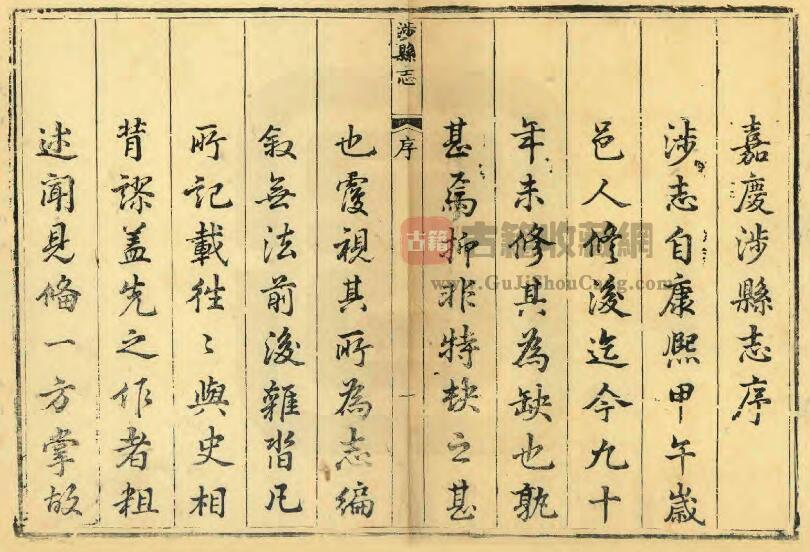 嘉慶涉縣志序
涉志自康熙甲午歲
邑人修後迄今九十
年未修其為缺也孰
甚焉抑非特缺之甚
涉縣志
序
一
也覆視其所為志編
敘無法前後雜沓凡
所記載徃〻與史相
背謬盖先之作者粗
述聞見俻一方掌故
古籍
古籍收藏網
www.GuJiShouCang.com